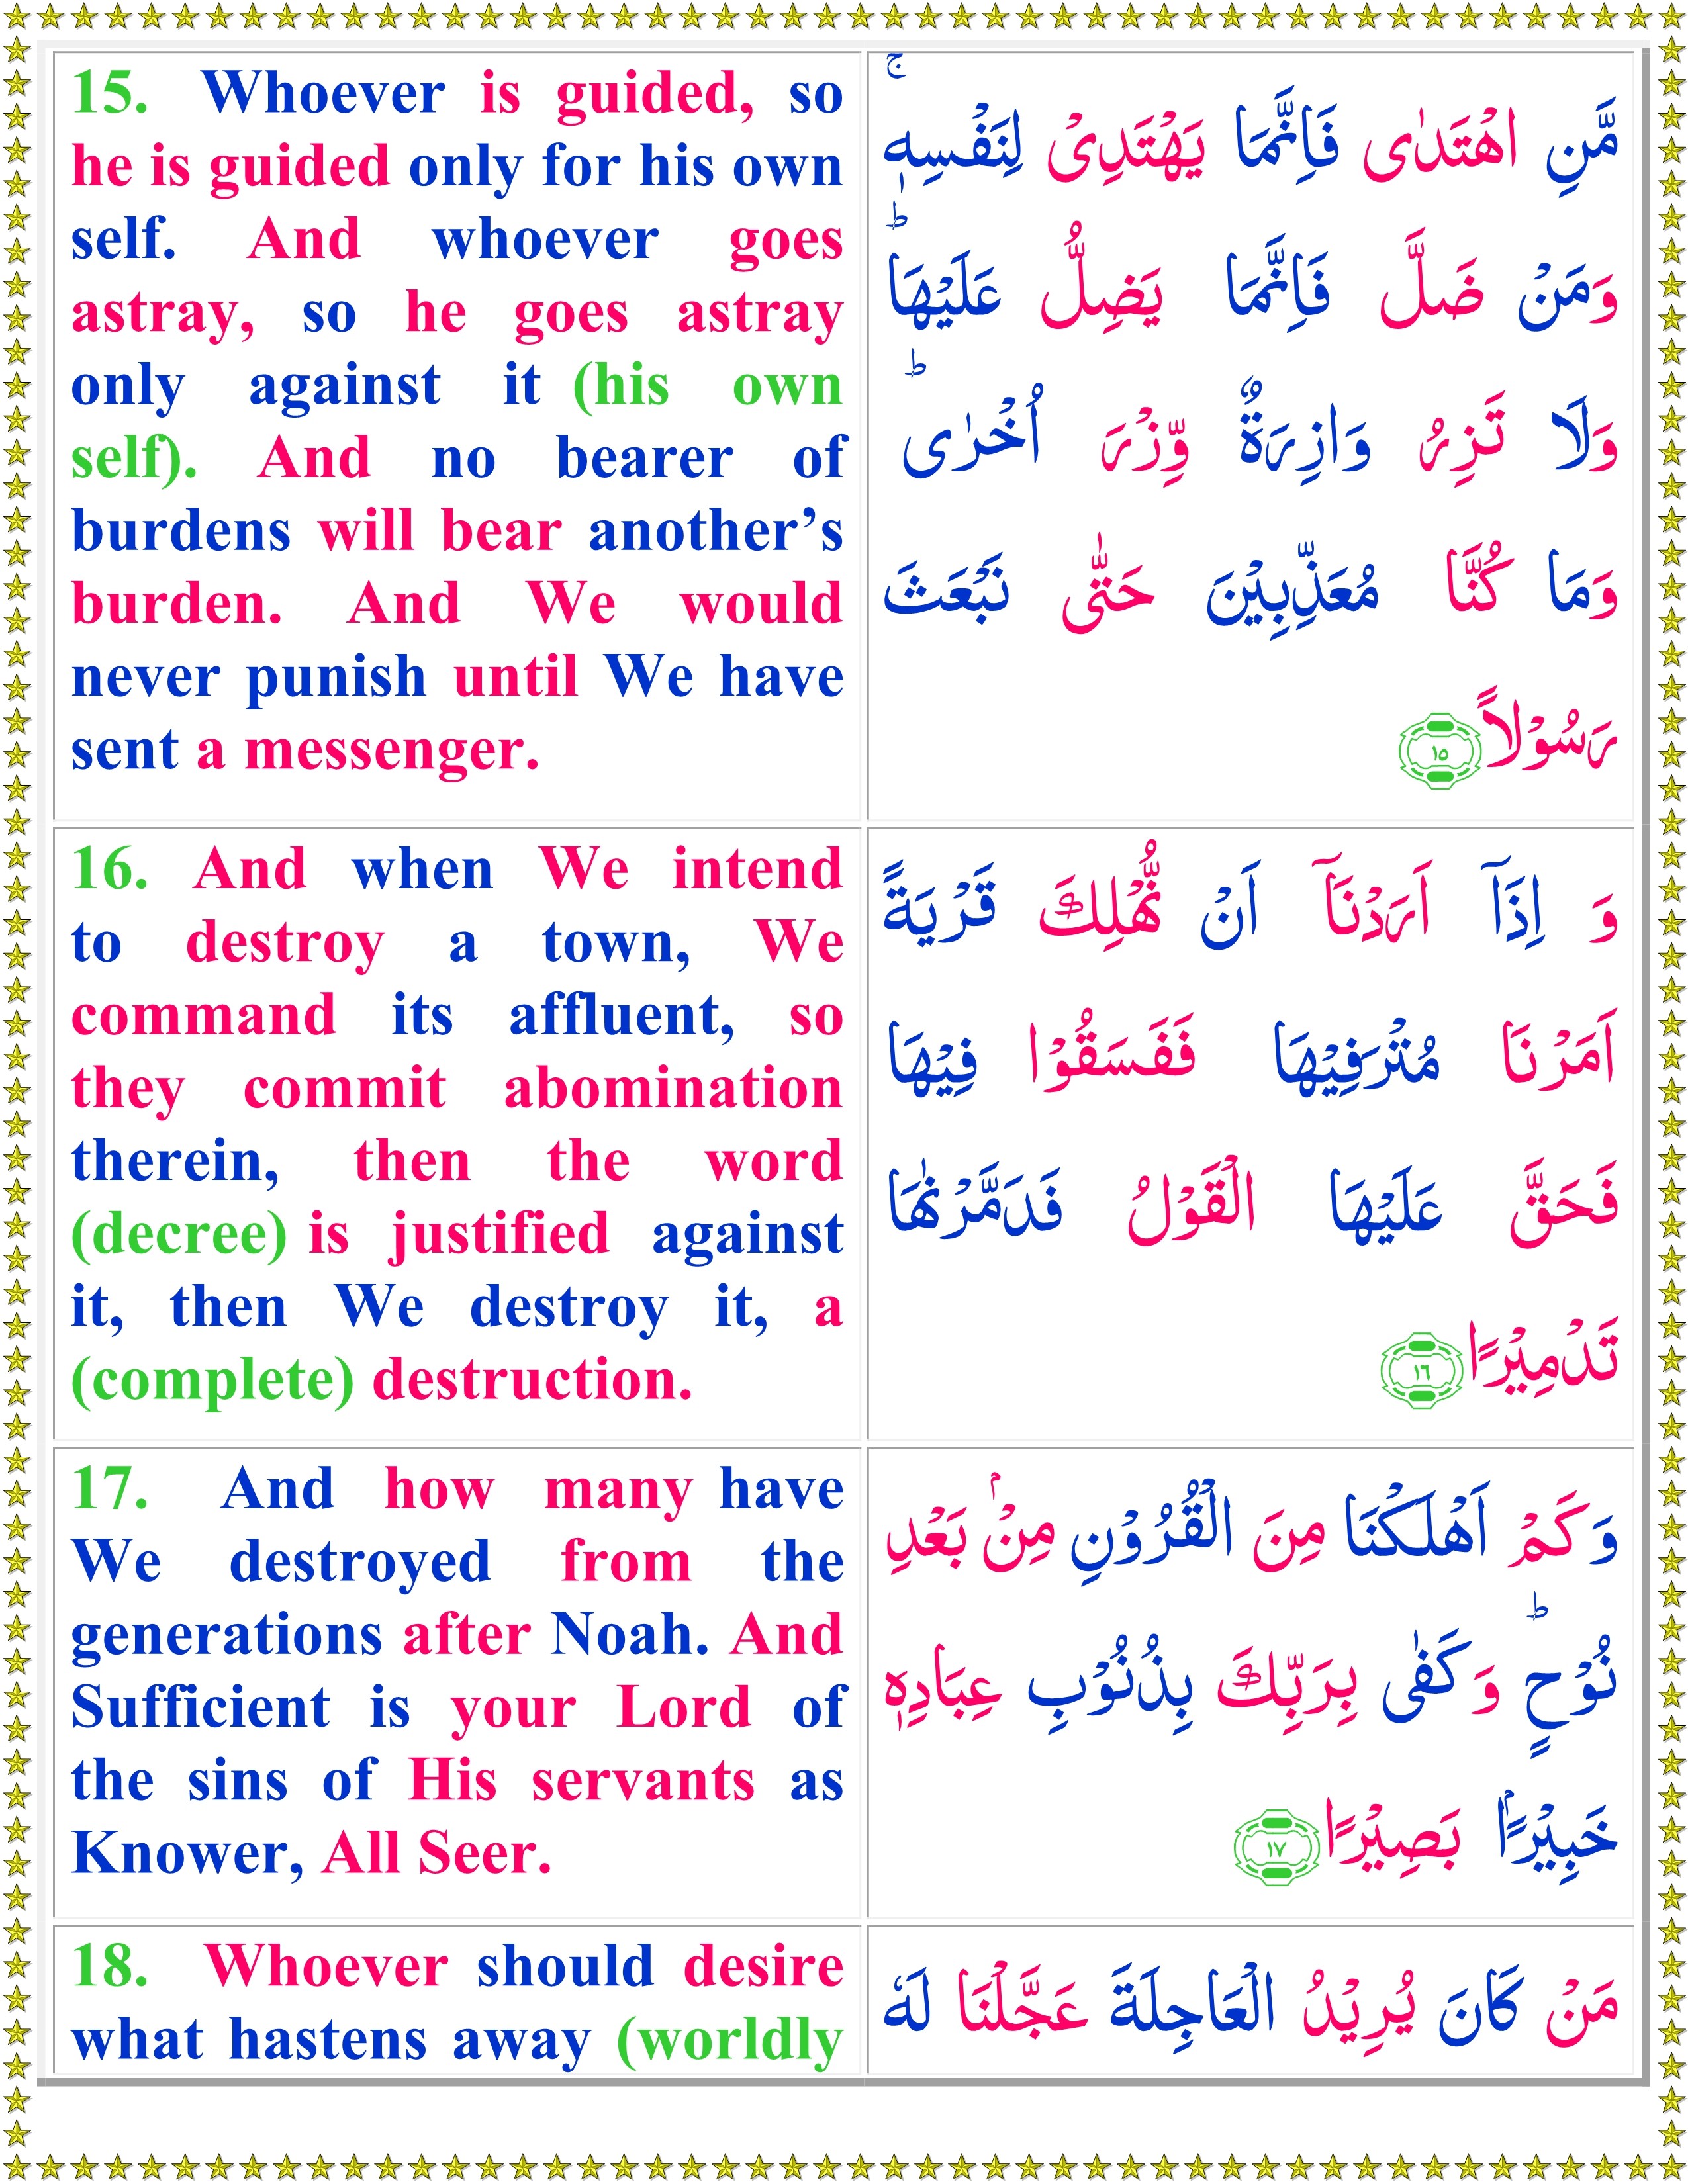 15. Whoever is guided, so
he is guided only for his own
self. And whoever goes
astray, so he goes astray
only against it (his own
self). And no bearer of
burdens will bear another’s
burden. And We would
never punish until We have
sent a messenger.
مَّنِ اهْتَدٰى فَاِنَّمَا يَهْتَدِىْ لِنَفْسِهٖ ۚ
وَمَنْ ضَلَّ فَاِنَّمَا يَضِلُّ عَلَيْهَا ؕ
وَلَا تَزِرُ وَازِرَةٌ وِّزْرَ اُخْرٰى ؕ
وَمَا كُنَّا مُعَذِّبِيْنَ حَتّٰى نَبْعَثَ
رَسُوْلًا ١٥
16. And when We intend
to destroy a town, We
command its affluent, so
they commit abomination
therein, then the word
(decree) is justified against
it, then We destroy it, a
(complete) destruction.
وَ اِذَاۤ اَرَدْنَاۤ اَنْ نُّهْلِكَ قَرْيَةً
اَمَرْنَا مُتْرَفِيْهَا فَفَسَقُوْا فِيْهَا
فَحَقَّ عَلَيْهَا الْقَوْلُ فَدَمَّرْنٰهَا
تَدْمِيْرًا ١٦
17. And how many have
We destroyed from the
generations after Noah. And
Sufficient is your Lord of
the sins of His servants as
Knower, All Seer.
وَكَمْ اَهْلَكْنَا مِنَ الْقُرُوْنِ مِنْۢ بَعْدِ
نُوْحٍ ؕ وَكَفٰى بِرَبِّكَ بِذُنُوْبِ عِبَادِهٖ
خَبِيْرًۢا بَصِيْرًا ١٧
18. Whoever should desire
what hastens away (worldly
مَنْ كَانَ يُرِيْدُ الْعَاجِلَةَ عَجَّلْنَا لَهٗ